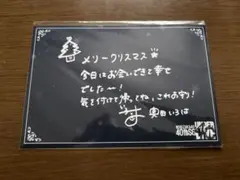 メリークリスマス
今日はお会いできて幸せ
でしたー!
気を付けて帰ってね，これあげる!
奥田いろは